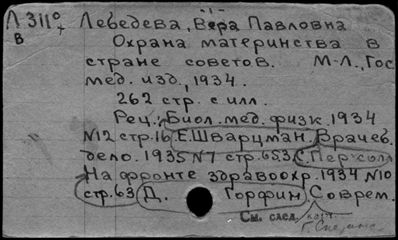 Л 311⁰ Лебедева, Вера Павловна
В
Охрана материнства в
стране советов. М-Л., Гос.
мед. изд., 1934.
262 стр. с илл.
Рец.: Биол. мед. физк. 1934
№12 стр. 16. Е. Шварцман, Врачеб.
дело. 1935 №7 стр. 653 С.
На фронте здравоохр. 1934 №10
стр. 63 Д. Горфин, Соврем.
См. след.